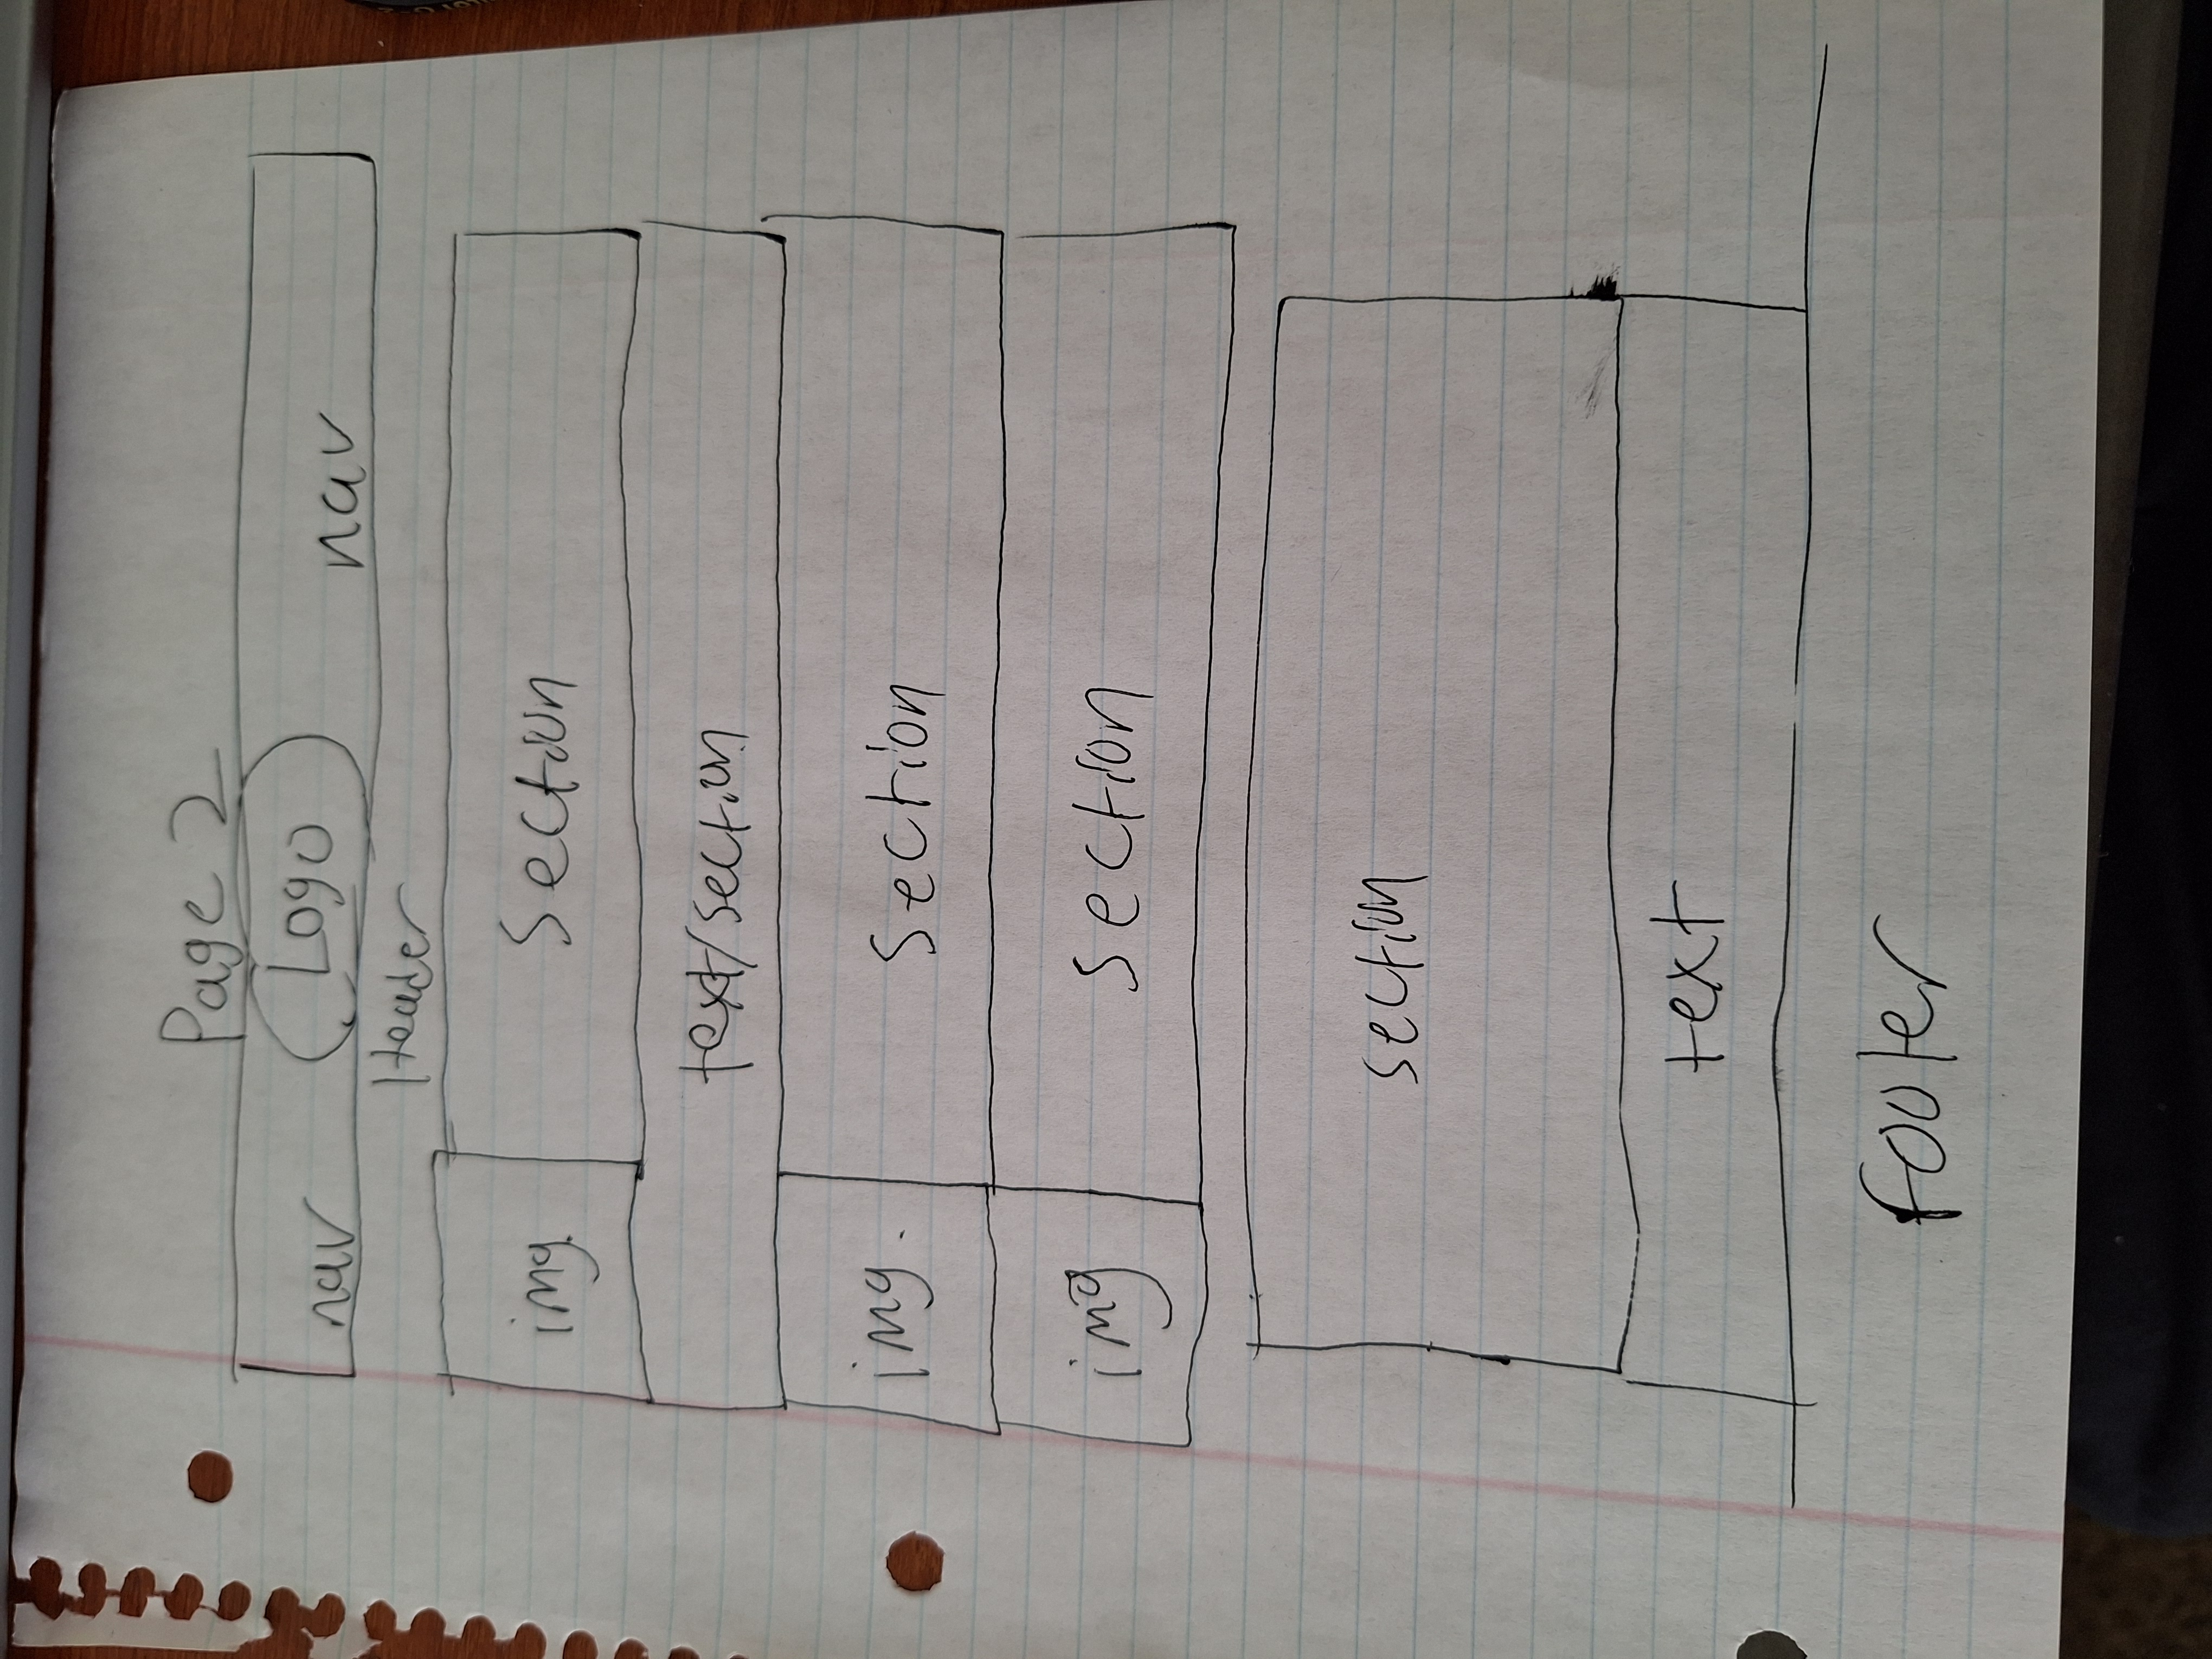 Page 2
nav Logo nav
Header
img. Section
text/section
img. Section
img section
section
text
footer